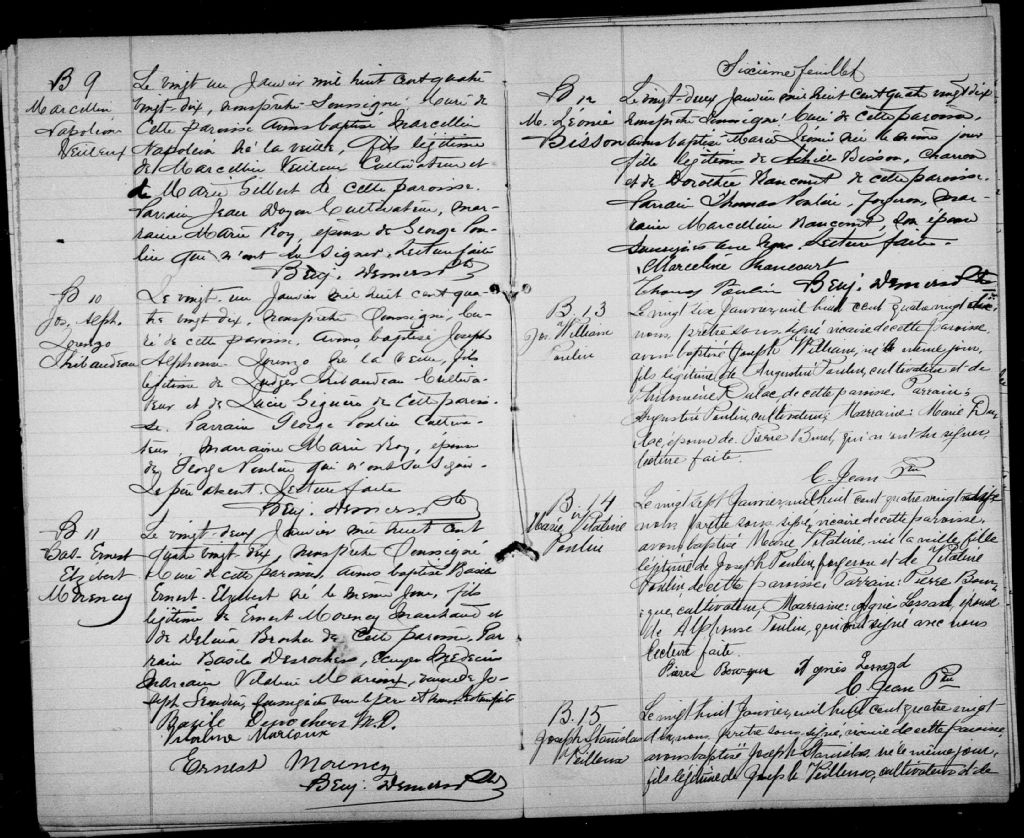 B 9
Marcellin
Napoléon
Veilleux
Le vingt un Janvier mil huit cent quatre
vingt-dix, nous prêtre soussigné, curé de
cette paroisse avons baptisé Marcellin
Napoléon né la veille, fils légitime
de Marcellin Veilleux Cultivateur et
de Marie Gilbert de cette paroisse.
Parrain Jean Doyon Cultivateur, mar-
raine Marie Roy, épouse de George Pou-
lin qui n'ont su signer. Lecture faite
Benj. Demers Ptre
B 10
Jos. Alph.
Lorenzo
Thibaudeau
Le vingt-un Janvier mil huit cent qua-
tre vingt dix, nous prêtre soussigné, cu-
ré de cette paroisse avons baptisé Joseph
Alphonse Lorenzo né la veille, fils
légitime de Ludger Thibaudeau Cultiva-
teur et de Lucie Giguère de cette parois-
se. Parrain George Poulin Cultiva-
teur, marraine Marie Roy, épouse
de George Poulin qui n'ont su signer.
Le père absent. Lecture faite
Benj. Demers Ptre
B 11
Bas. Ernest
Elzébert
Morency
Le vingt-deux Janvier mil huit cent
quatre vingt dix, nous prêtre soussigné
curé de cette paroisse, avons baptisé Basile
Ernest-Elzébert né le même jour, fils
légitime de Ernest Morency marchand et
de Delvina Brochu de cette paroisse. Par-
rain Basile Desrochers, écuyer médecin
marraine Vitaline Marcoux, de Jo-
seph soussignés avec le père et nous. Lecture faite
Basile Desrochers M.D.
Vitaline Marcoux
Ernest Morency
Benj. Demers Ptre
Sixième feuillet
B 12
M. Léonie
Bisson
Le vingt-deux Janvier mil huit cent quatre vingt dix
nous prêtre soussigné curé de cette paroisse,
avons baptisé Marie Léonie née le même jour
fille légitime de Achille Bisson, Charron
et de Dorothée Rancourt de cette paroisse.
Parrain Thomas Poulin, forgeron, mar-
raine Marcelline Rancourt, son épouse
soussignés avec nous. Lecture faite.
Marceline Rancourt
Thomas Poulin Benj. Demers Ptre
B. 13
Jos. William
Poulin
Le vingt six Janvier, mil huit cent quatre vingt dix
nous, prêtre sous signé, vicaire de cette paroisse,
avons baptisé Joseph William, né le même jour,
fils légitime de Augustin Poulin, cultivateur et de
Philomène Dulac de cette paroisse. Parrain:
Augustin Poulin, cultivateur; Marraine: Marie Du-
lac, épouse de Pierre Binet, qui n'ont su signer,
lecture faite.
C. Jean Ptre
B. 14
Marie Vitaline
Poulin
Le vingt sept Janvier, mil huit cent quatre vingt dix
nous prêtre sous signé, vicaire de cette paroisse
avons baptisé Marie Vitaline, née la veille, fille
légitime de Joseph Poulin, forgeron et de Vitaline
Poulin de cette paroisse. Parrain: Pierre Bour-
gue, cultivateur, Marraine: Agnès Lessard, épouse
de Alphonse Poulin, qui ont signé avec nous
lecture faite.
Pierre Bourgue Agnès Lessard
C. Jean Ptre
B. 15
Joseph Stanislas
Veilleux
Le vingt huit Janvier, mil huit cent quatre vingt
dix, nous prêtre sous signé, vicaire de cette paroisse,
avons baptisé Joseph Stanislas né le même jour,
fils légitime de Joseph Veilleux, cultivateur et de